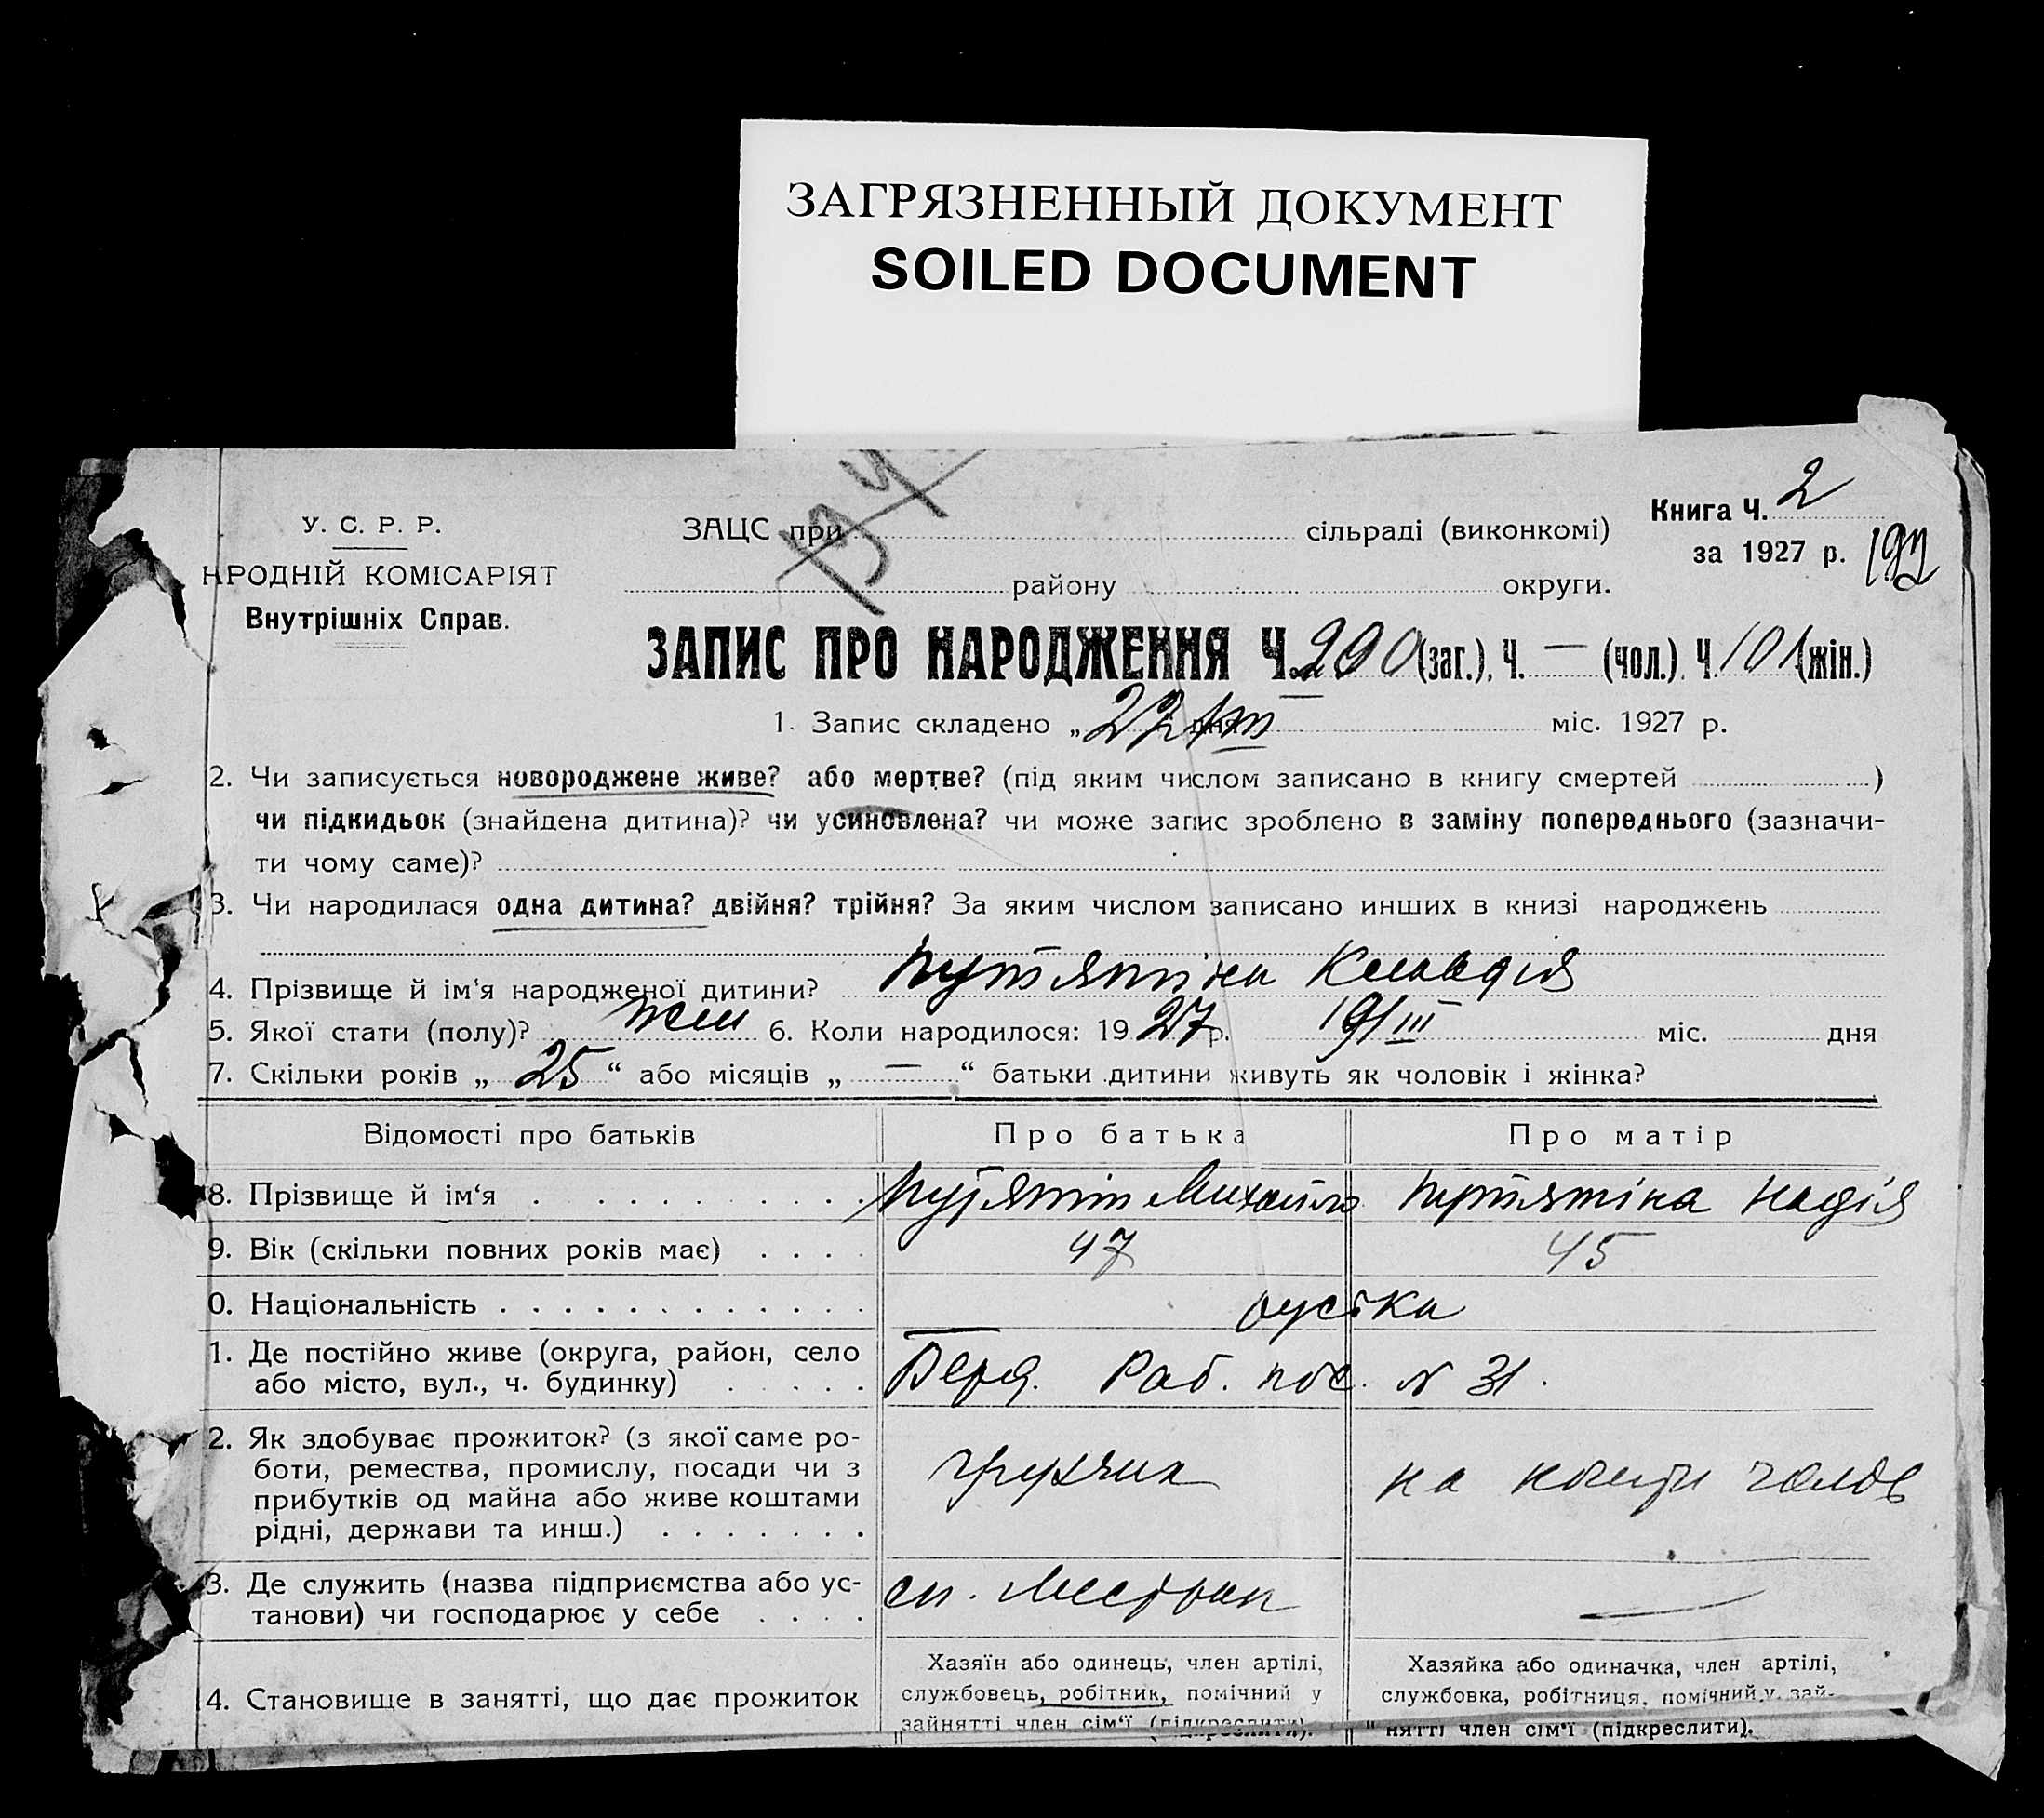 ЗАГРЯЗНЕННЫЙ ДОКУМЕНТ
SOILED DOCUMENT
У. С. Р. Р.
НРОДНІЙ КОМІСАРІЯТ
Внутрішніх Справ.
ЗАЦС при сільраді (виконкомі)
району округи.
Книга Ч. 2
за 1927 р.
192
ЗАПИС ПРО НАРОДЖЕННЯ Ч. 290 (заг.), Ч. — (чол.). Ч. 101 (жін.)
1. Запис складено „ 22/III дня міс. 1927 р.
2. Чи записується новороджене живе? або мертве? (під яким числом записано в книгу смертей )
чи підкидьок (знайдена дитина)? чи усиновлена? чи може запис зроблено в заміну попереднього (зазначи-
ти чому саме)?
3. Чи народилася одна дитина? двійня? трійня? За яким числом записано инших в книзі народжень
4. Прізвище й ім'я народженої дитини? Путятіна Клавдія
5. Якої стати (полу)? жін 6. Коли народилося: 1927 р. 19/III міс. дня
7. Скільки років „ 25 “ або місяців „ — “ батьки дитини живуть як чоловік і жінка?
Відомості про батьків Про батька Про матір
8. Прізвище й ім'я Путятін Михайло Путятіна Надія
9. Вік (скільки повних років має) 47 45
0. Національність руська
1. Де постійно живе (округа, район, село
або місто, вул., ч. будинку) Берд. Раб. пос. N 31.
2. Як здобуває прожиток? (з якої саме ро-
боти, ремества, промислу, посади чи з
прибутків од майна або живе коштами
рідні, держави та инш.) грузчик на кошти чолов
3. Де служить (назва підприємства або ус-
танови) чи господарює у себе —
4. Становище в занятті, що дає прожиток
Хазяїн або одинець, член артілі,
службовець, робітник, помічний у
зайнятті член сім'ї (підкреслити).
Хазяйка або одиначка, член артілі,
службовка, робітниця, помічний у зай-
нятті член сім'ї (підкреслити).